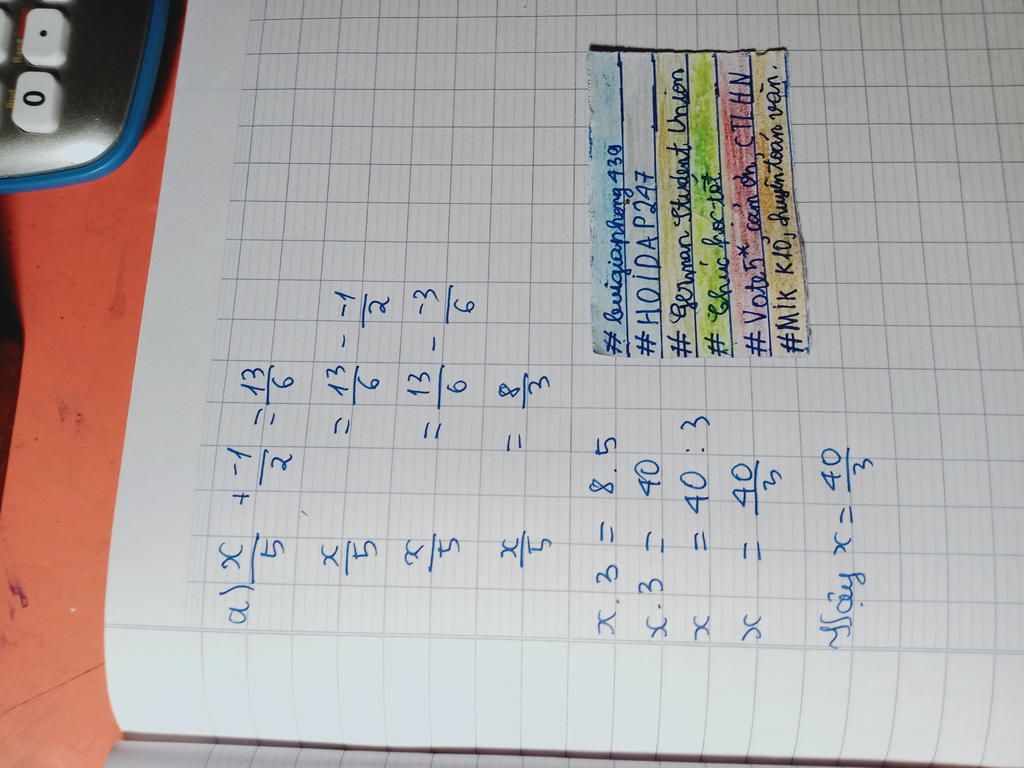 a) x/5 + -1/2 = 13/6
x/5 = 13/6 - -1/2
x/5 = 13/6 - -3/6
x/5 = 8/3
x . 3 = 8 . 5
x . 3 = 40
x = 40 : 3
x = 40/3
Vậy x = 40/3
# buigiaphong439
# HOIDAP247
# German Student Union
# Chúc học tốt
# Vote 5* cảm ơn, CTLHN
# Mik K10, chuyên toán văn.
0
.